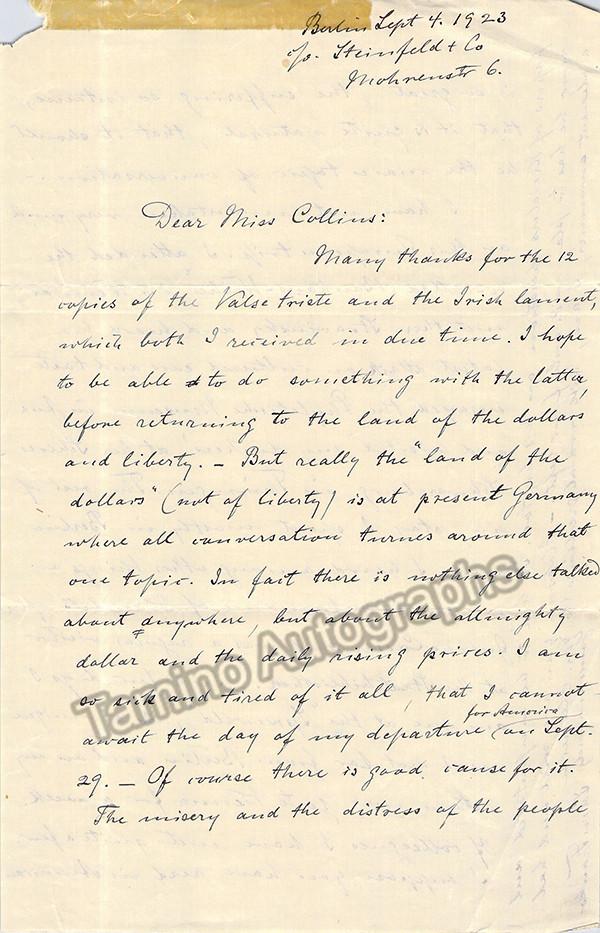 Berlin Sept 4. 1923
c/o. Steinfeld + Co
Mohrenstr 6.
Dear Miss Collins:
Many thanks for the 12
copies of the Valse triste and the Irish lament,
which both I received in due time. I hope
to be able to do something with the latter,
before returning to the land of the dollars
and liberty. – But really the "land of the
dollars" (not of liberty) is at present Germany
where all conversation turnes around that
one topic. In fact there is nothing else talked
about anywhere, but about the allmighty
dollar and the daily rising prices. I am
so sick and tired of it all, that I cannot
for America
await the day of my departure (on Sept.
29. – Of course there is good cause for it.
The misery and the distress of the people
Tamino Autographs